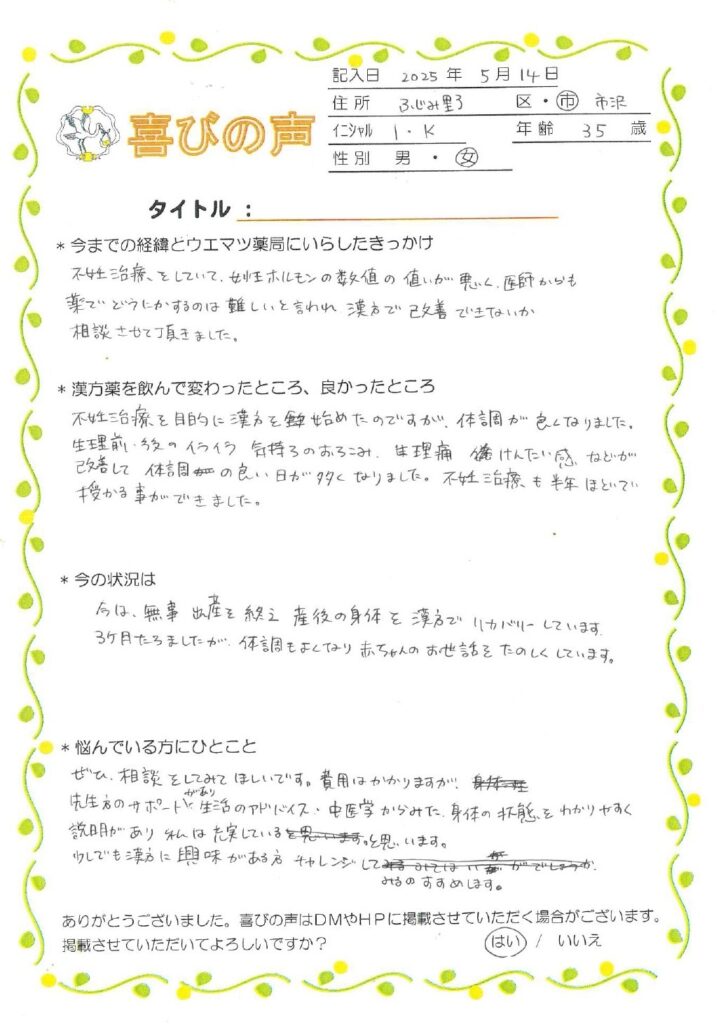 記入日 2025年 5月14日
住所 ふじみ野 区・市 市沢
イニシャル I・K 年齢 35 歳
性別 男・女
喜びの声
タイトル：
*今までの経緯とウエマツ薬局にいらしたきっかけ
不妊治療をしていて、女性ホルモンの数値の値いが悪く、医師からも
薬でどうにかするのは難しいと言われ 漢方で改善できないか
相談させて頂きました。
*漢方薬を飲んで変わったところ、良かったところ
不妊治療を目的に漢方を始めたのですが、体調が良くなりました。
生理前・後のイライラ 気持ちのおちこみ、生理痛 けんたい感などが
改善して 体調の良い日が多くなりました。不妊治療も半年ほどでい
授かる事ができました。
*今の状況は
今は、無事 出産を終え 産後の身体を漢方でリカバリーしています
3ケ月たちましたが、体調もよくなり赤ちゃんのお世話をたのしくしています。
*悩んでいる方にひとこと
ぜひ、相談をしてみてほしいです。費用はかかりますが、
先生方のサポートがあり 生活のアドバイス・中医学からみた身体の状態をわかりやすく
説明があり 私は充実していると思います。
少しでも漢方に興味がある方 チャレンジして
みるのすすめします。
ありがとうございました。喜びの声はDMやHPに掲載させていただく場合がございます。
掲載させていただいてよろしいですか？ はい / いいえ